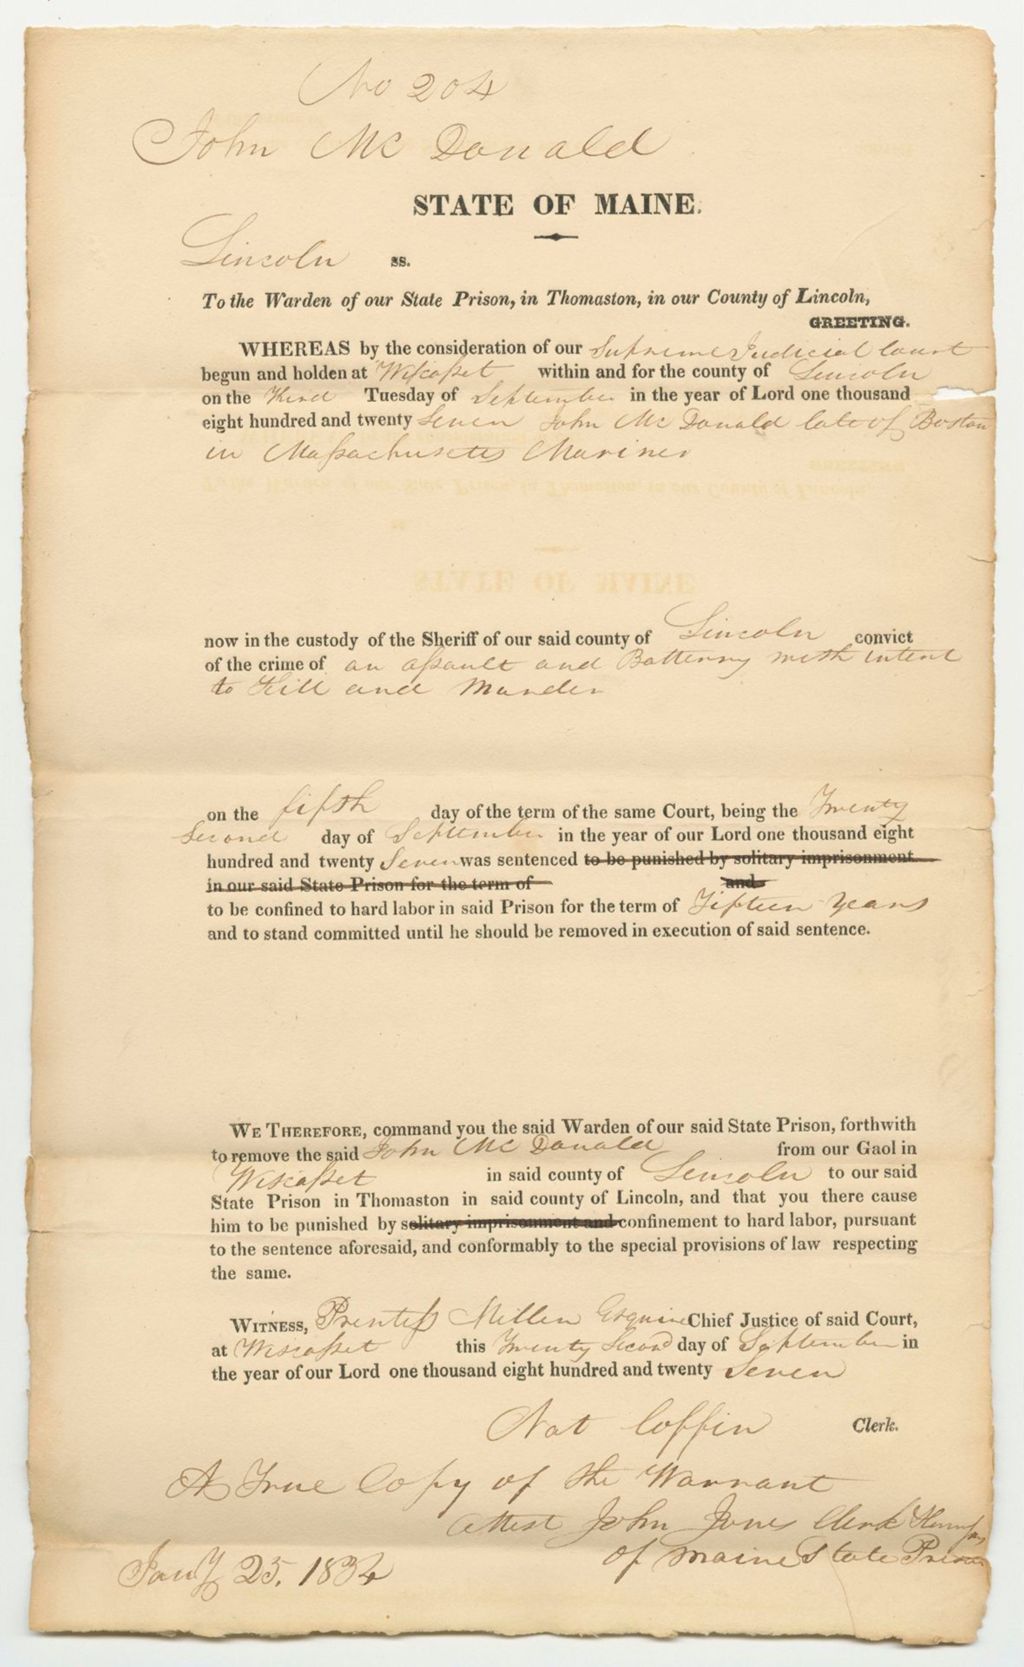 No 204
John Mc Donald
STATE OF MAINE.
Lincoln ss.
To the Warden of our State Prison, in Thomaston, in our County of Lincoln,
GREETING.
WHEREAS by the consideration of our Supreme Judicial Court
begun and holden at Wiscasset within and for the county of Lincoln
on the Third Tuesday of September in the year of Lord one thousand
eight hundred and twenty Seven John Mc Donald late of Boston
in Massachusetts Mariner
now in the custody of the Sheriff of our said county of Lincoln convict
of the crime of an assault and Batterry with intent
to Kill and Murder
on the fifth day of the term of the same Court, being the Twenty
Second day of September in the year of our Lord one thousand eight
hundred and twenty Seven was sentenced to be punished by solitary imprisonment
in our said State Prison for the term of and
to be confined to hard labor in said Prison for the term of Fifteen Years
and to stand committed until he should be removed in execution of said sentence.
WE THEREFORE, command you the said Warden of our said State Prison, forthwith
to remove the said John Mc Donald from our Gaol in
Wiscasset in said county of Lincoln to our said
State Prison in Thomaston in said county of Lincoln, and that you there cause
him to be punished by solitary imprisonment and confinement to hard labor, pursuant
to the sentence aforesaid, and conformably to the special provisions of law respecting
the same.
WITNESS, Prentiss Mellen Esquire Chief Justice of said Court,
at Wiscasset this Twenty Second day of September in
the year of our Lord one thousand eight hundred and twenty Seven
Nat Coffin Clerk.
A True Copy of the Warrant
Attest John Jones Clerk
of Maine State Prison
Jany 25, 1834